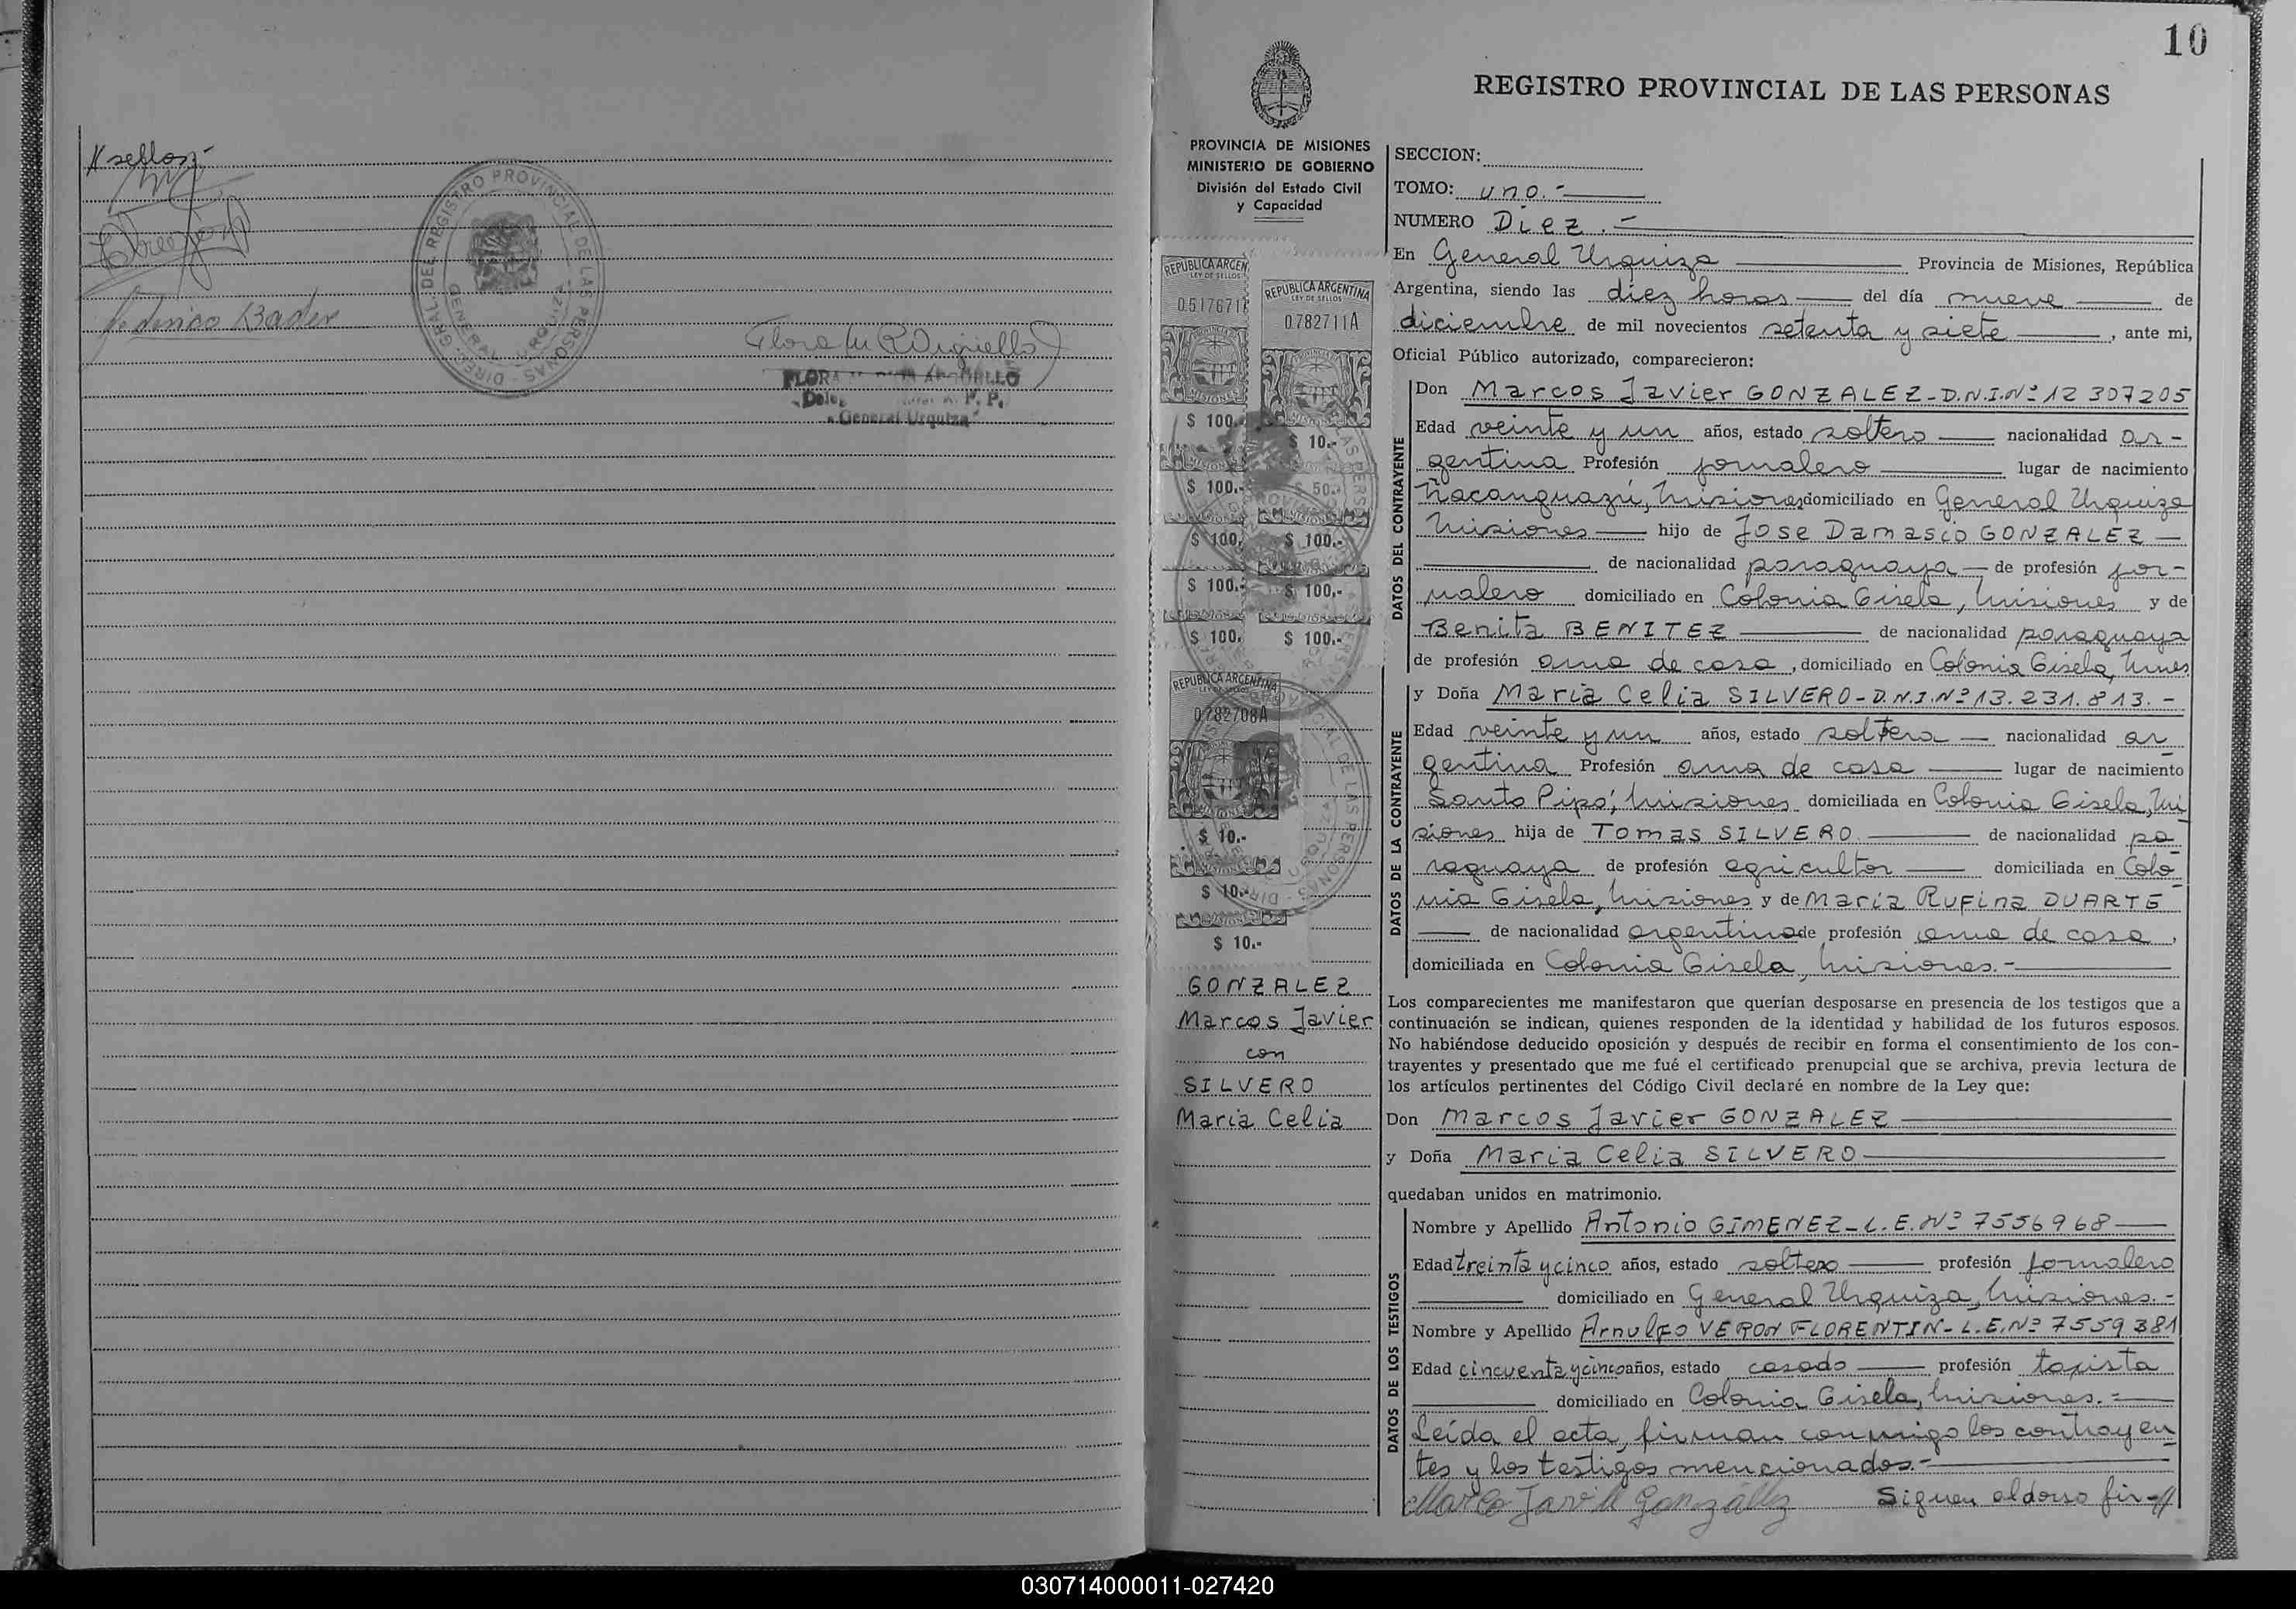 // sellos.-
Federico Bader
DIRE. GRAL. DEL REGISTRO PROVINCIAL DE LAS PERSONAS
GENERAL URQUIZA
FLORA
General Urquiza
10
REGISTRO PROVINCIAL DE LAS PERSONAS
PROVINCIA DE MISIONES
MINISTERIO DE GOBIERNO
División del Estado Civil
y Capacidad
SECCION:
TOMO: uno.-
NUMERO Diez.-
En General Urquiza Provincia de Misiones, República
Argentina, siendo las diez horas del día nueve de
diciembre de mil novecientos setenta y siete, ante mi,
Oficial Público autorizado, comparecieron:
DATOS DEL CONTRAYENTE
Don Marcos Javier GONZALEZ-D.N.I.Nº 12 307205
Edad veinte y un años, estado soltero nacionalidad ar-
gentina Profesión jornalero lugar de nacimiento
Ñacanguazú, Misiones domiciliado en General Urquiza
Misiones hijo de Jose Damasio GONZALEZ
de nacionalidad paraguaya de profesión jor-
nalero domiciliado en Colonia Gisela, Misiones y de
Benita BENITEZ de nacionalidad paraguaya
de profesión ama de casa, domiciliado en Colonia Gisela, Mnes
DATOS DE LA CONTRAYENTE
y Doña Maria Celia SILVERO-D.N.I.Nº 13.231.813.-
Edad veinte y un años, estado soltera nacionalidad ar
gentina Profesión ama de casa lugar de nacimiento
Santo Pipó, Misiones domiciliada en Colonia Gisela, Mi
siones hija de Tomas SILVERO. de nacionalidad pa
raguaya de profesión agricultor domiciliada en Colo
nia Gisela, Misiones y de María Rufina DUARTE
de nacionalidad argentina de profesión ama de casa,
domiciliada en Colonia Gisela, Misiones.-
Los comparecientes me manifestaron que querían desposarse en presencia de los testigos que a
continuación se indican, quienes responden de la identidad y habilidad de los futuros esposos.
No habiéndose deducido oposición y después de recibir en forma el consentimiento de los con-
trayentes y presentado que me fué el certificado prenupcial que se archiva, previa lectura de
los artículos pertinentes del Código Civil declaré en nombre de la Ley que:
Don Marcos Javier GONZALEZ
y Doña Maria Celia SILVERO
quedaban unidos en matrimonio.
DATOS DE LOS TESTIGOS
Nombre y Apellido Antonio GIMENEZ-L.E.Nº 7556968
Edad treinta y cinco años, estado soltero profesión jornalero
domiciliado en General Urquiza, Misiones.-
Nombre y Apellido Arnulfo VERON FLORENTIN-L.E.Nº 7559381
Edad cincuenta y cinco años, estado casado profesión taxista
domiciliado en Colonia Gisela, Misiones.-
Leída el acta, firman conmigo los contrayen
tes y los testigos mencionados.-
Marco Javier González Siguen al dorso fir-//
REPUBLICA ARGEN
LEY DE SELLOS
0517671
REPUBLICA ARGENTINA
LEY DE SELLOS
0.782711A
$ 100.-
$ 10.-
$ 100.-
$ 50.-
$ 100.
$ 100.-
$ 100.-
$ 100,-
$ 100.
$ 100.-
REPUBLICA ARGENTINA
0782708A
MISIONES
$ 10.-
$ 10.-
$ 10.-
GONZALEZ
Marcos Javier
con
SILVERO
Maria Celia
030714000011-027420